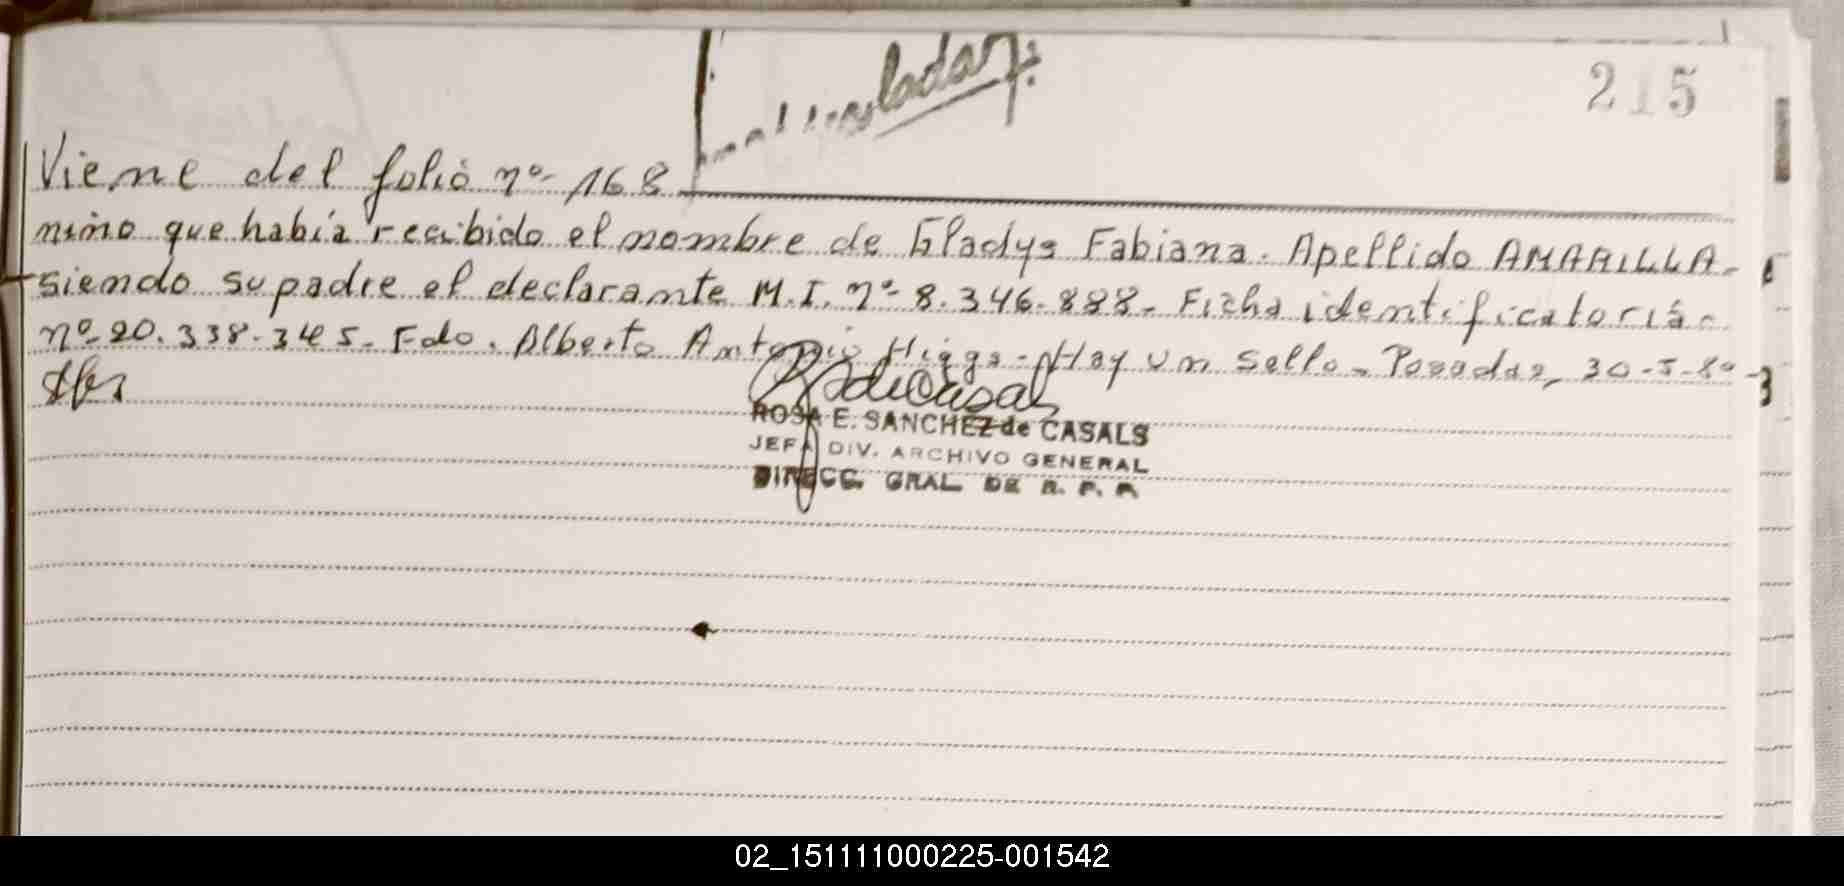 215
Viene del folio nº 168
nino que había recibido el nombre de Gladys Fabiana. Apellido AMARILLA-
siendo su padre el declarante M.I. nº 8.346.888- Ficha identificatoria
nº 20.338.345- Fdo. Alberto Antonio Higgs- Hay un sello- Posadas, 30-5-80-
ROSA E. SANCHEZ de CASALS
JEFA DIV. ARCHIVO GENERAL
DIRECC. GRAL DE R. P. P.
02_151111000225-001542